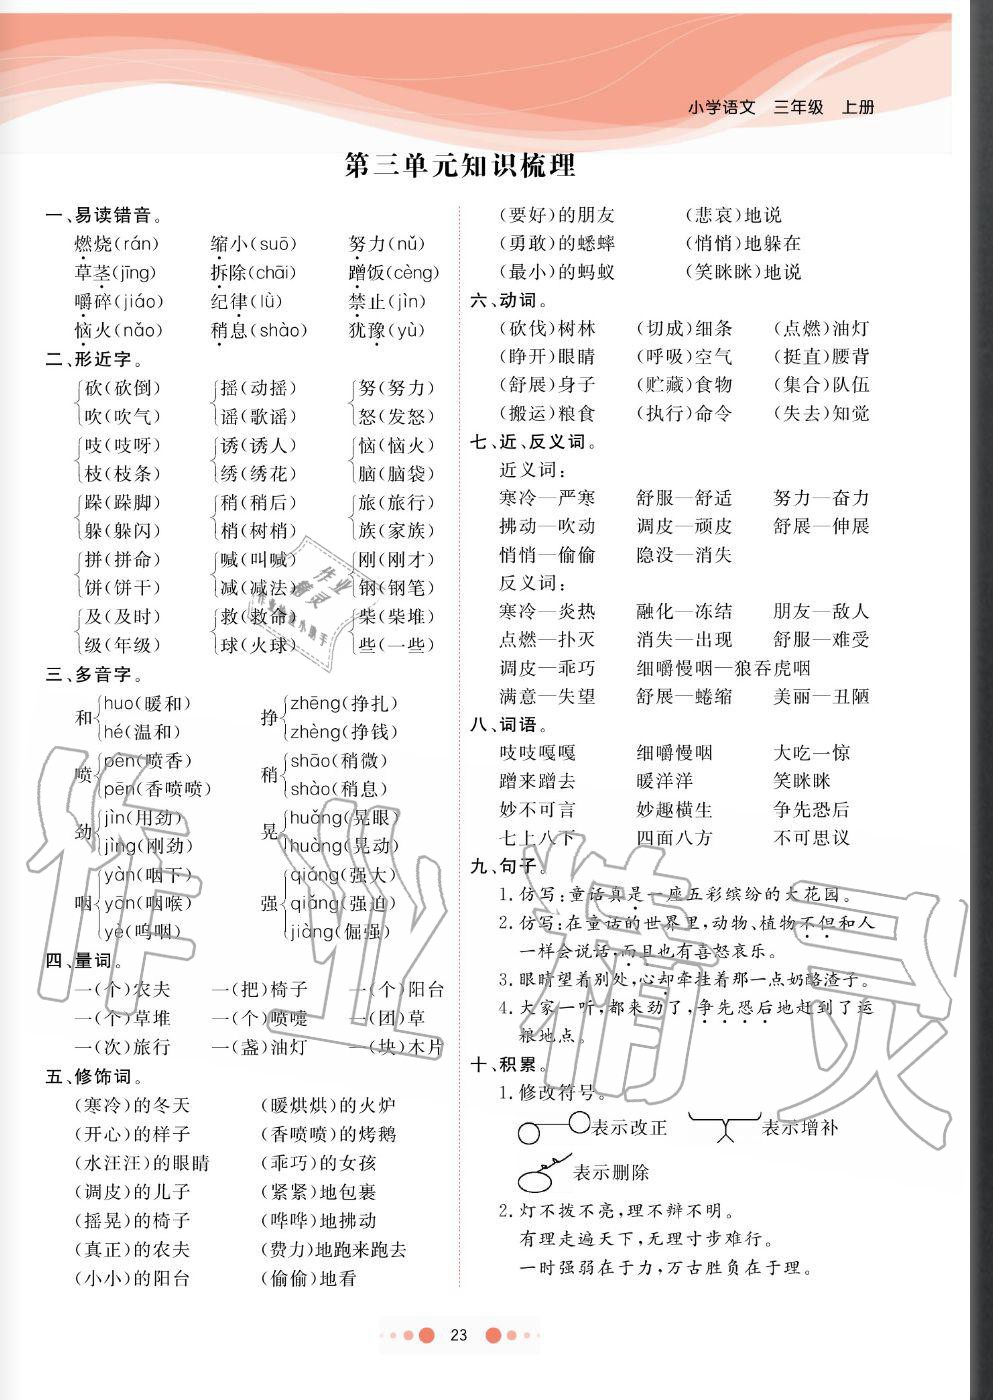 小学语文 三年级 上册
第三单元知识梳理
一、易读错音。
燃烧(rán) 缩小(suō) 努力(nǔ)
草茎(jīng) 拆除(chāi) 蹭饭(cèng)
嚼碎(jiáo) 纪律(lǜ) 禁止(jìn)
恼火(nǎo) 稍息(shào) 犹豫(yù)
二、形近字。
砍(砍倒) 摇(动摇) 努(努力)
吹(吹气) 谣(歌谣) 怒(发怒)
吱(吱呀) 诱(诱人) 恼(恼火)
枝(枝条) 绣(绣花) 脑(脑袋)
跺(跺脚) 稍(稍后) 旅(旅行)
躲(躲闪) 梢(树梢) 族(家族)
拼(拼命) 喊(叫喊) 刚(刚才)
饼(饼干) 减(减法) 钢(钢笔)
及(及时) 救(救命) 柴(柴堆)
级(年级) 球(火球) 些(一些)
三、多音字。
和 huo(暖和) hé(温和) 挣 zhēng(挣扎) zhèng(挣钱)
喷 pēn(喷香) pēn(香喷喷) 稍 shāo(稍微) shào(稍息)
劲 jìn(用劲) jìng(刚劲) 晃 huǎng(晃眼) huàng(晃动)
咽 yàn(咽下) yān(咽喉) yè(呜咽) 强 qiáng(强大) qiǎng(强迫) jiàng(倔强)
四、量词。
一(个)农夫 一(把)椅子 一(个)阳台
一(个)草堆 一(个)喷嚏 一(团)草
一(次)旅行 一(盏)油灯 一(块)木片
五、修饰词。
(寒冷)的冬天 (暖烘烘)的火炉
(开心)的样子 (香喷喷)的烤鹅
(水汪汪)的眼睛 (乖巧)的女孩
(调皮)的儿子 (紧紧)地包裹
(摇晃)的椅子 (哗哗)地拂动
(真正)的农夫 (费力)地跑来跑去
(小小)的阳台 (偷偷)地看
(要好)的朋友 (悲哀)地说
(勇敢)的蟋蟀 (悄悄)地躲在
(最小)的蚂蚁 (笑眯眯)地说
六、动词。
(砍伐)树林 (切成)细条 (点燃)油灯
(睁开)眼睛 (呼吸)空气 (挺直)腰背
(舒展)身子 (贮藏)食物 (集合)队伍
(搬运)粮食 (执行)命令 (失去)知觉
七、近、反义词。
近义词:
寒冷—严寒 舒服—舒适 努力—奋力
拂动—吹动 调皮—顽皮 舒展—伸展
悄悄—偷偷 隐没—消失
反义词:
寒冷—炎热 融化—冻结 朋友—敌人
点燃—扑灭 消失—出现 舒服—难受
调皮—乖巧 细嚼慢咽—狼吞虎咽
满意—失望 舒展—蜷缩 美丽—丑陋
八、词语。
吱吱嘎嘎 细嚼慢咽 大吃一惊
蹭来蹭去 暖洋洋 笑眯眯
妙不可言 妙趣横生 争先恐后
七上八下 四面八方 不可思议
九、句子。
1.仿写:童话真是一座五彩缤纷的大花园。
2.仿写:在童话的世界里,动物、植物不但和人
一样会说话,而且也有喜怒哀乐。
3.眼睛望着别处,心却牵挂着那一点奶酪渣子。
4.大家一听,都来劲了,争先恐后地赶到了运
粮地点。
十、积累。
1.修改符号。
表示改正 表示增补
表示删除
2.灯不拨不亮,理不辩不明。
有理走遍天下,无理寸步难行。
一时强弱在于力,万古胜负在于理。
23
作业精灵